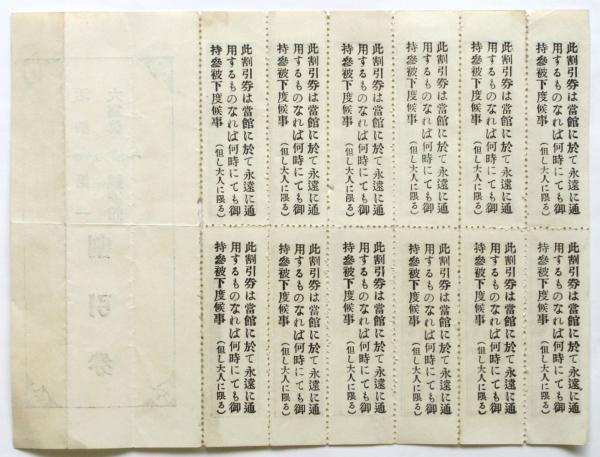 此割引券は當館に於て永遠に通
用するものなれば何時にても御
持參被下度候事
(但し大人に限る)
此割引券は當館に於て永遠に通
用するものなれば何時にても御
持參被下度候事
(但し大人に限る)
此割引券は當館に於て永遠に通
用するものなれば何時にても御
持參被下度候事
(但し大人に限る)
此割引券は當館に於て永遠に通
用するものなれば何時にても御
持參被下度候事
(但し大人に限る)
此割引券は當館に於て永遠に通
用するものなれば何時にても御
持參被下度候事
(但し大人に限る)
此割引券は當館に於て永遠に通
用するものなれば何時にても御
持參被下度候事
(但し大人に限る)
此割引券は當館に於て永遠に通
用するものなれば何時にても御
持參被下度候事
(但し大人に限る)
此割引券は當館に於て永遠に通
用するものなれば何時にても御
持參被下度候事
(但し大人に限る)
此割引券は當館に於て永遠に通
用するものなれば何時にても御
持參被下度候事
(但し大人に限る)
此割引券は當館に於て永遠に通
用するものなれば何時にても御
持參被下度候事
(但し大人に限る)
此割引券は當館に於て永遠に通
用するものなれば何時にても御
持參被下度候事
(但し大人に限る)
此割引券は當館に於て永遠に通
用するものなれば何時にても御
持參被下度候事
(但し大人に限る)
割引券